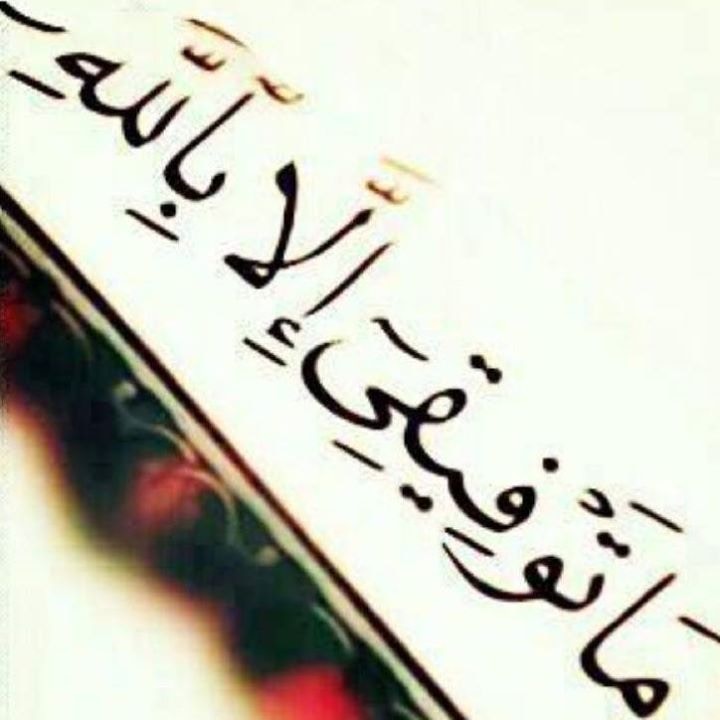 مَا تَوْفِيقِىَ إِلَّا بِٱللَّهِ